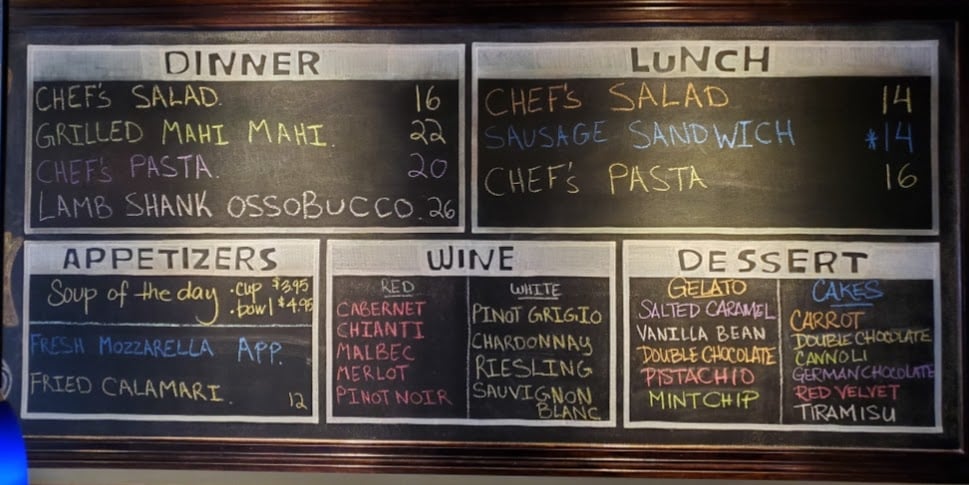 DINNER
CHEF'S SALAD. 16
GRILLED MAHI MAHI. 22
CHEF'S PASTA. 20
LAMB SHANK OSSOBUCCO. 26
LUNCH
CHEF'S SALAD 14
SAUSAGE SANDWICH *14
CHEF'S PASTA 16
APPETIZERS
Soup of the day .cup $3.95
.bowl $4.95
FRESH MOZZARELLA APP.
FRIED CALAMARI. 12
WINE
RED
CABERNET
CHIANTI
MALBEC
MERLOT
PINOT NOIR
WHITE
PINOT GRIGIO
CHARDONNAY
RIESLING
SAUVIGNON
BLANC
DESSERT
GELATO
SALTED CARAMEL
VANILLA BEAN
DOUBLE CHOCOLATE
PISTACHIO
MINT CHIP
CAKES
CARROT
DOUBLE CHOCOLATE
CANNOLI
GERMAN CHOCOLATE
RED VELVET
TIRAMISU